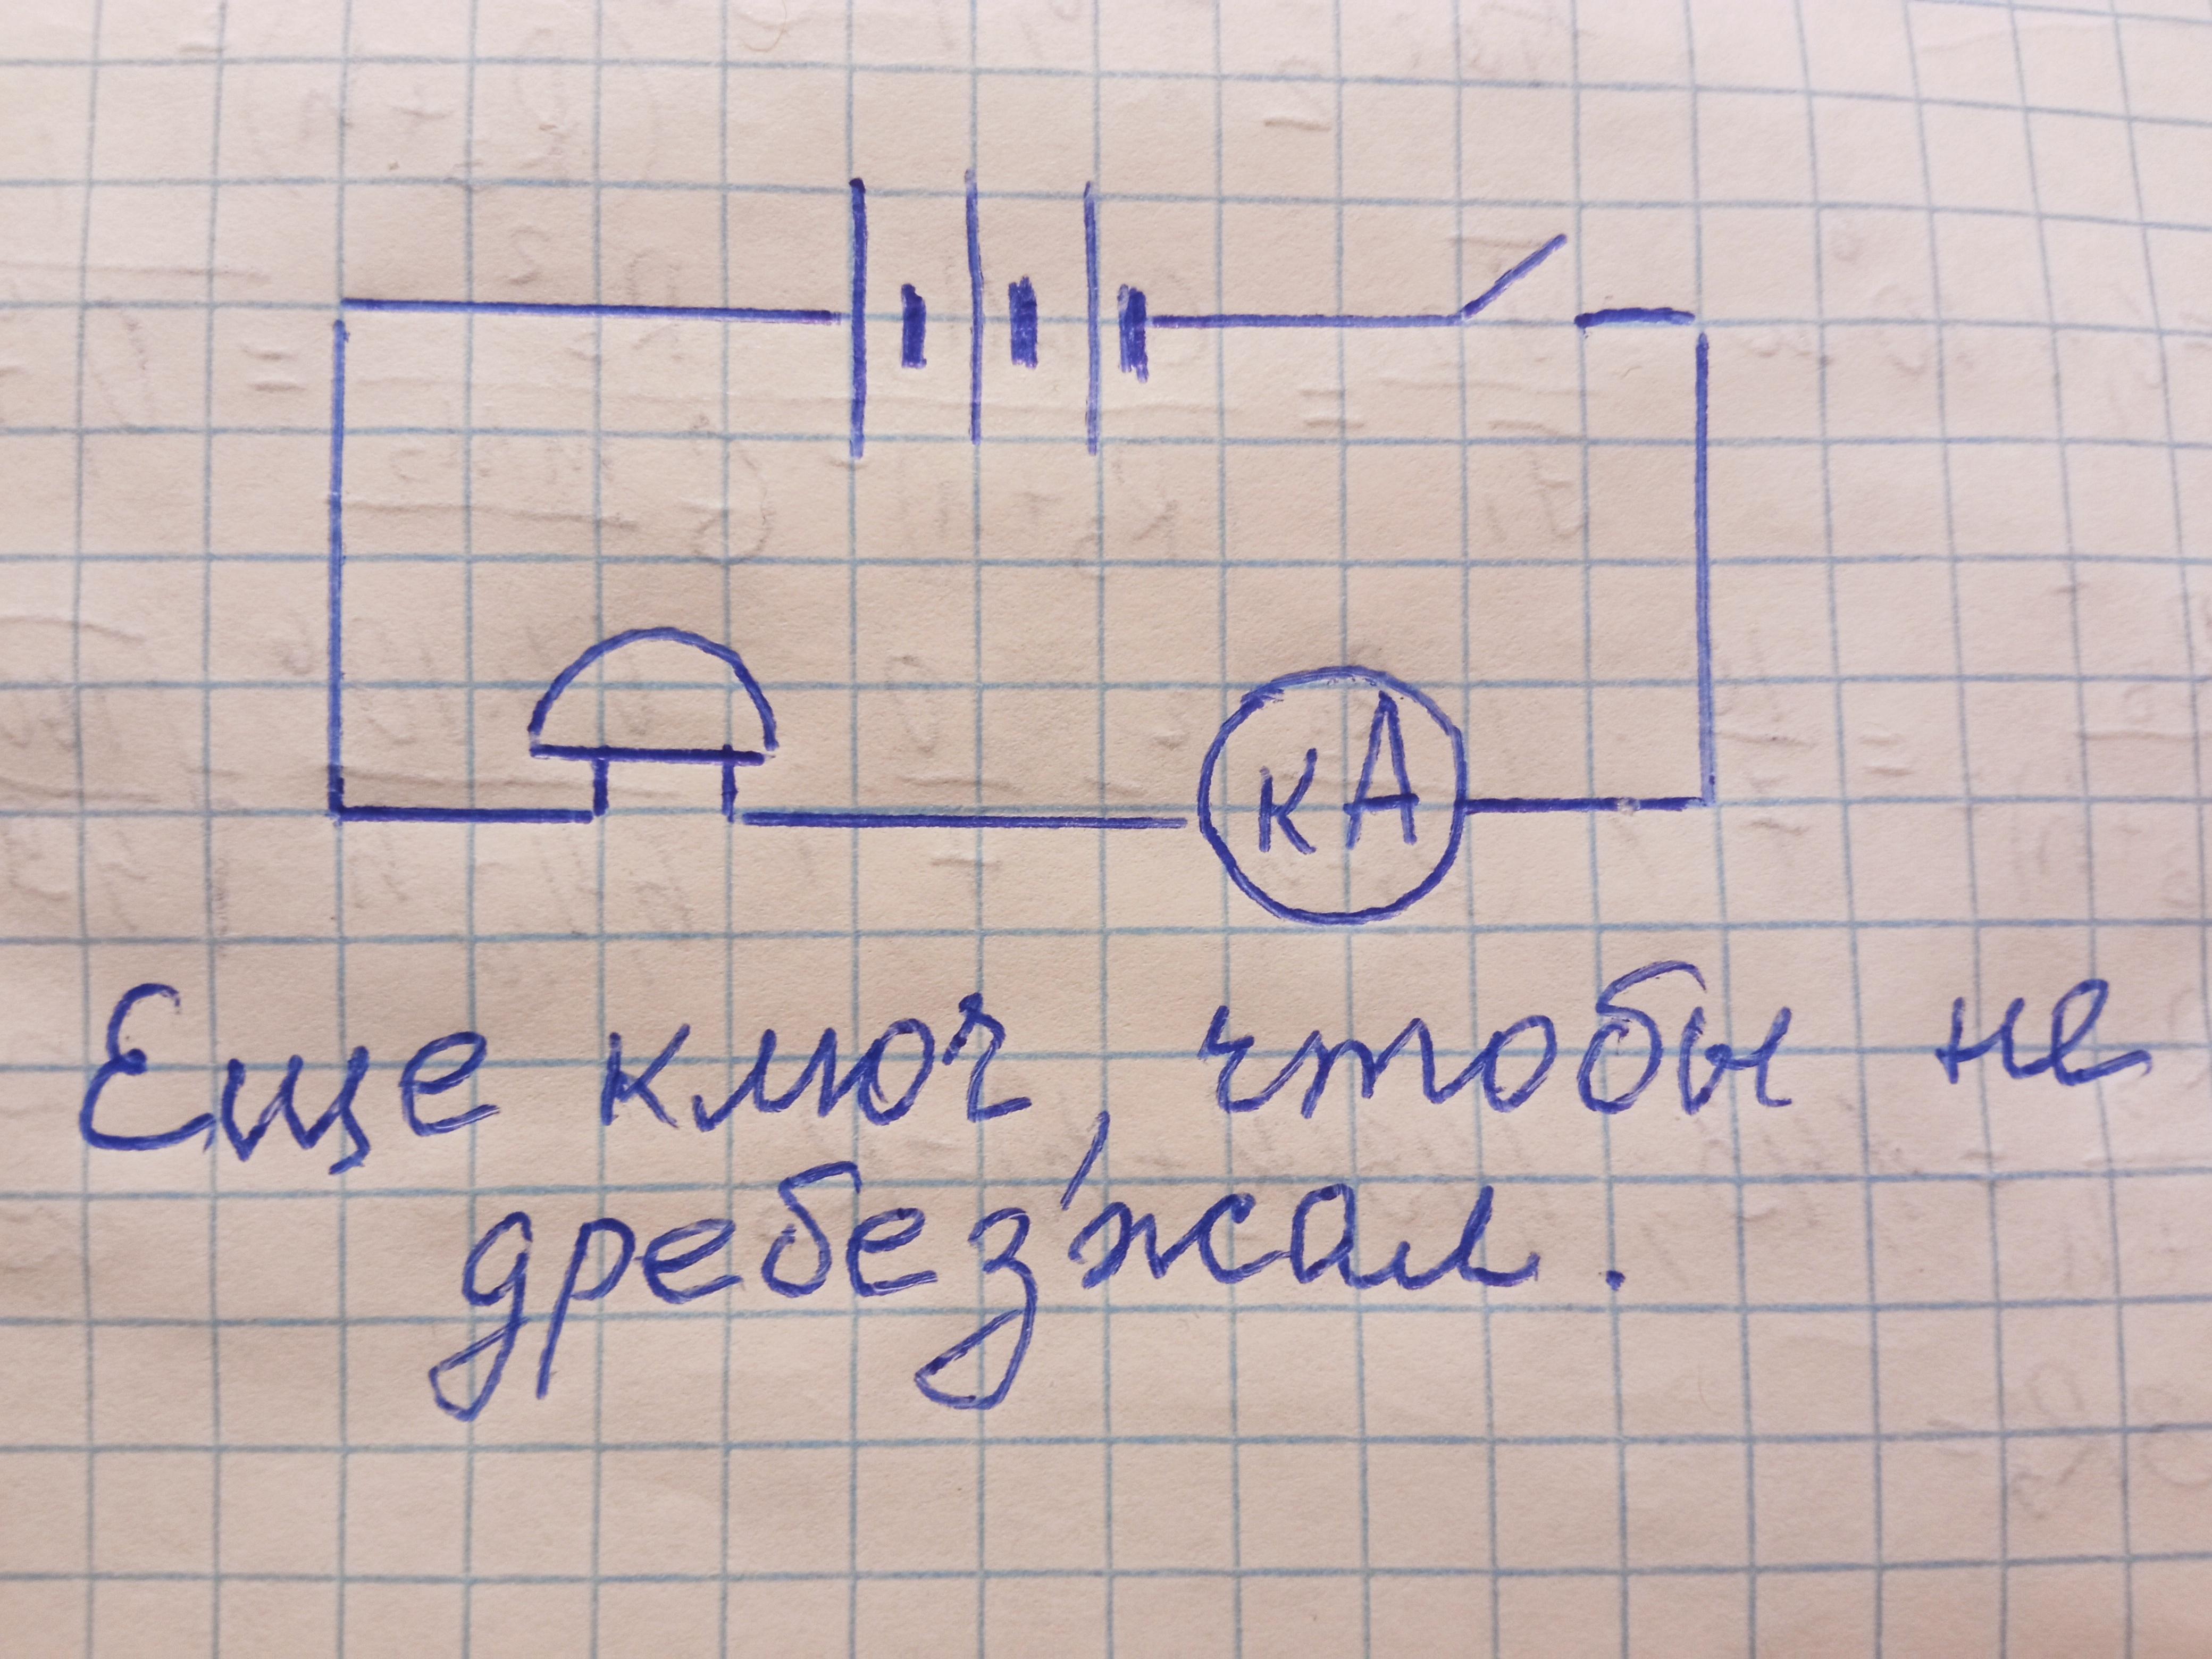 кА
Еще ключ, чтобы не
дребезжал.